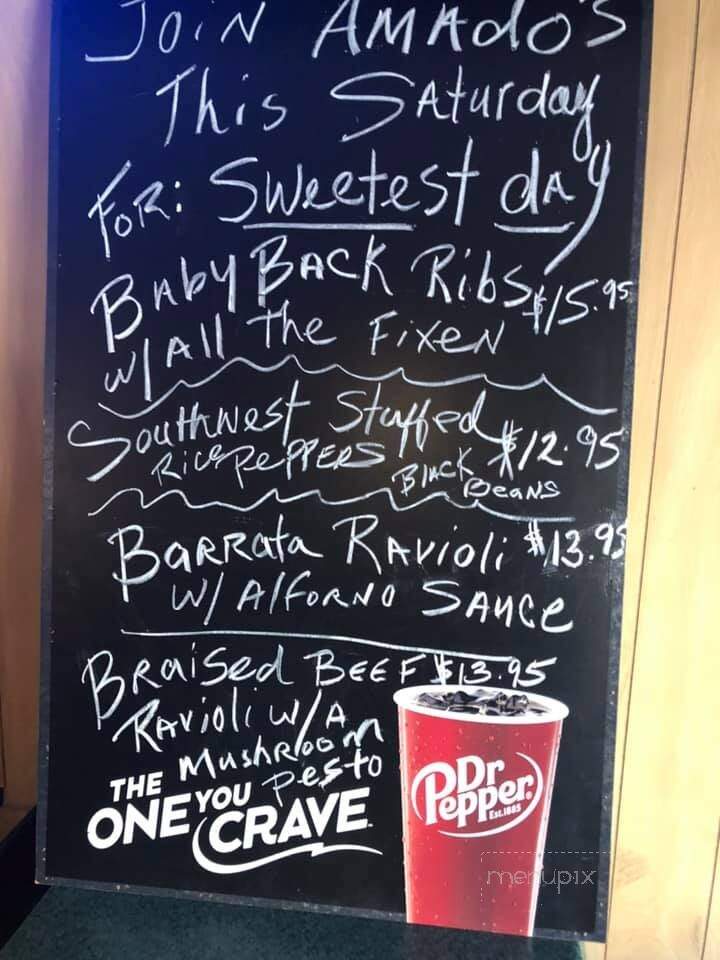 JOIN AMAdO'S
This SAturday
FOR: Sweetest dAy
BAby BACK Ribs $15.95
w/ All The FixeN
Southwest Stuffed $12.95
Rice PePPERS Black Beans
BaRRata RAvioli $13.95
w/ AlfoRNO SAuce
BRaiSed BEEF $13.95
RAvioli w/ A
MushRoom
Pesto
THE
ONE YOU
CRAVE
Dr
Pepper
Est.1885
menupix